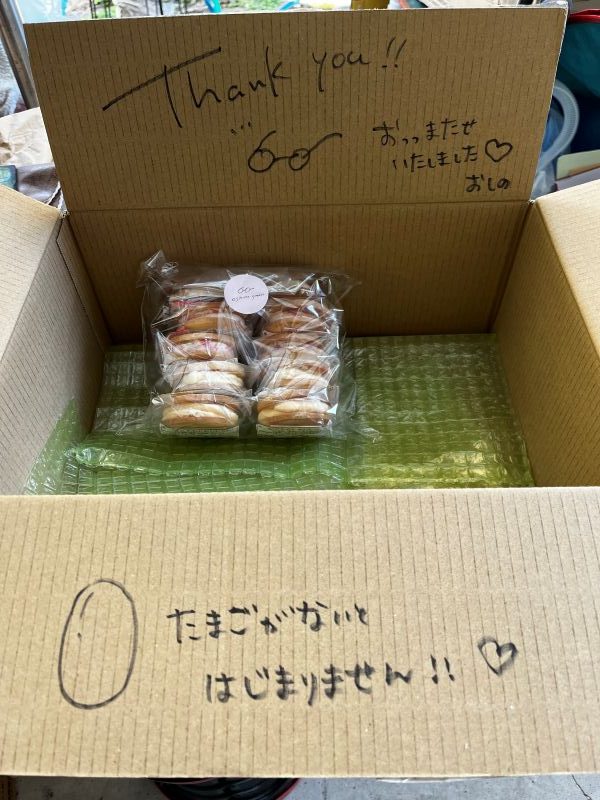 Thank you!!
おっっまたせ
いたしました♡
おしの
たまごがないと
はじまりません!! ♡